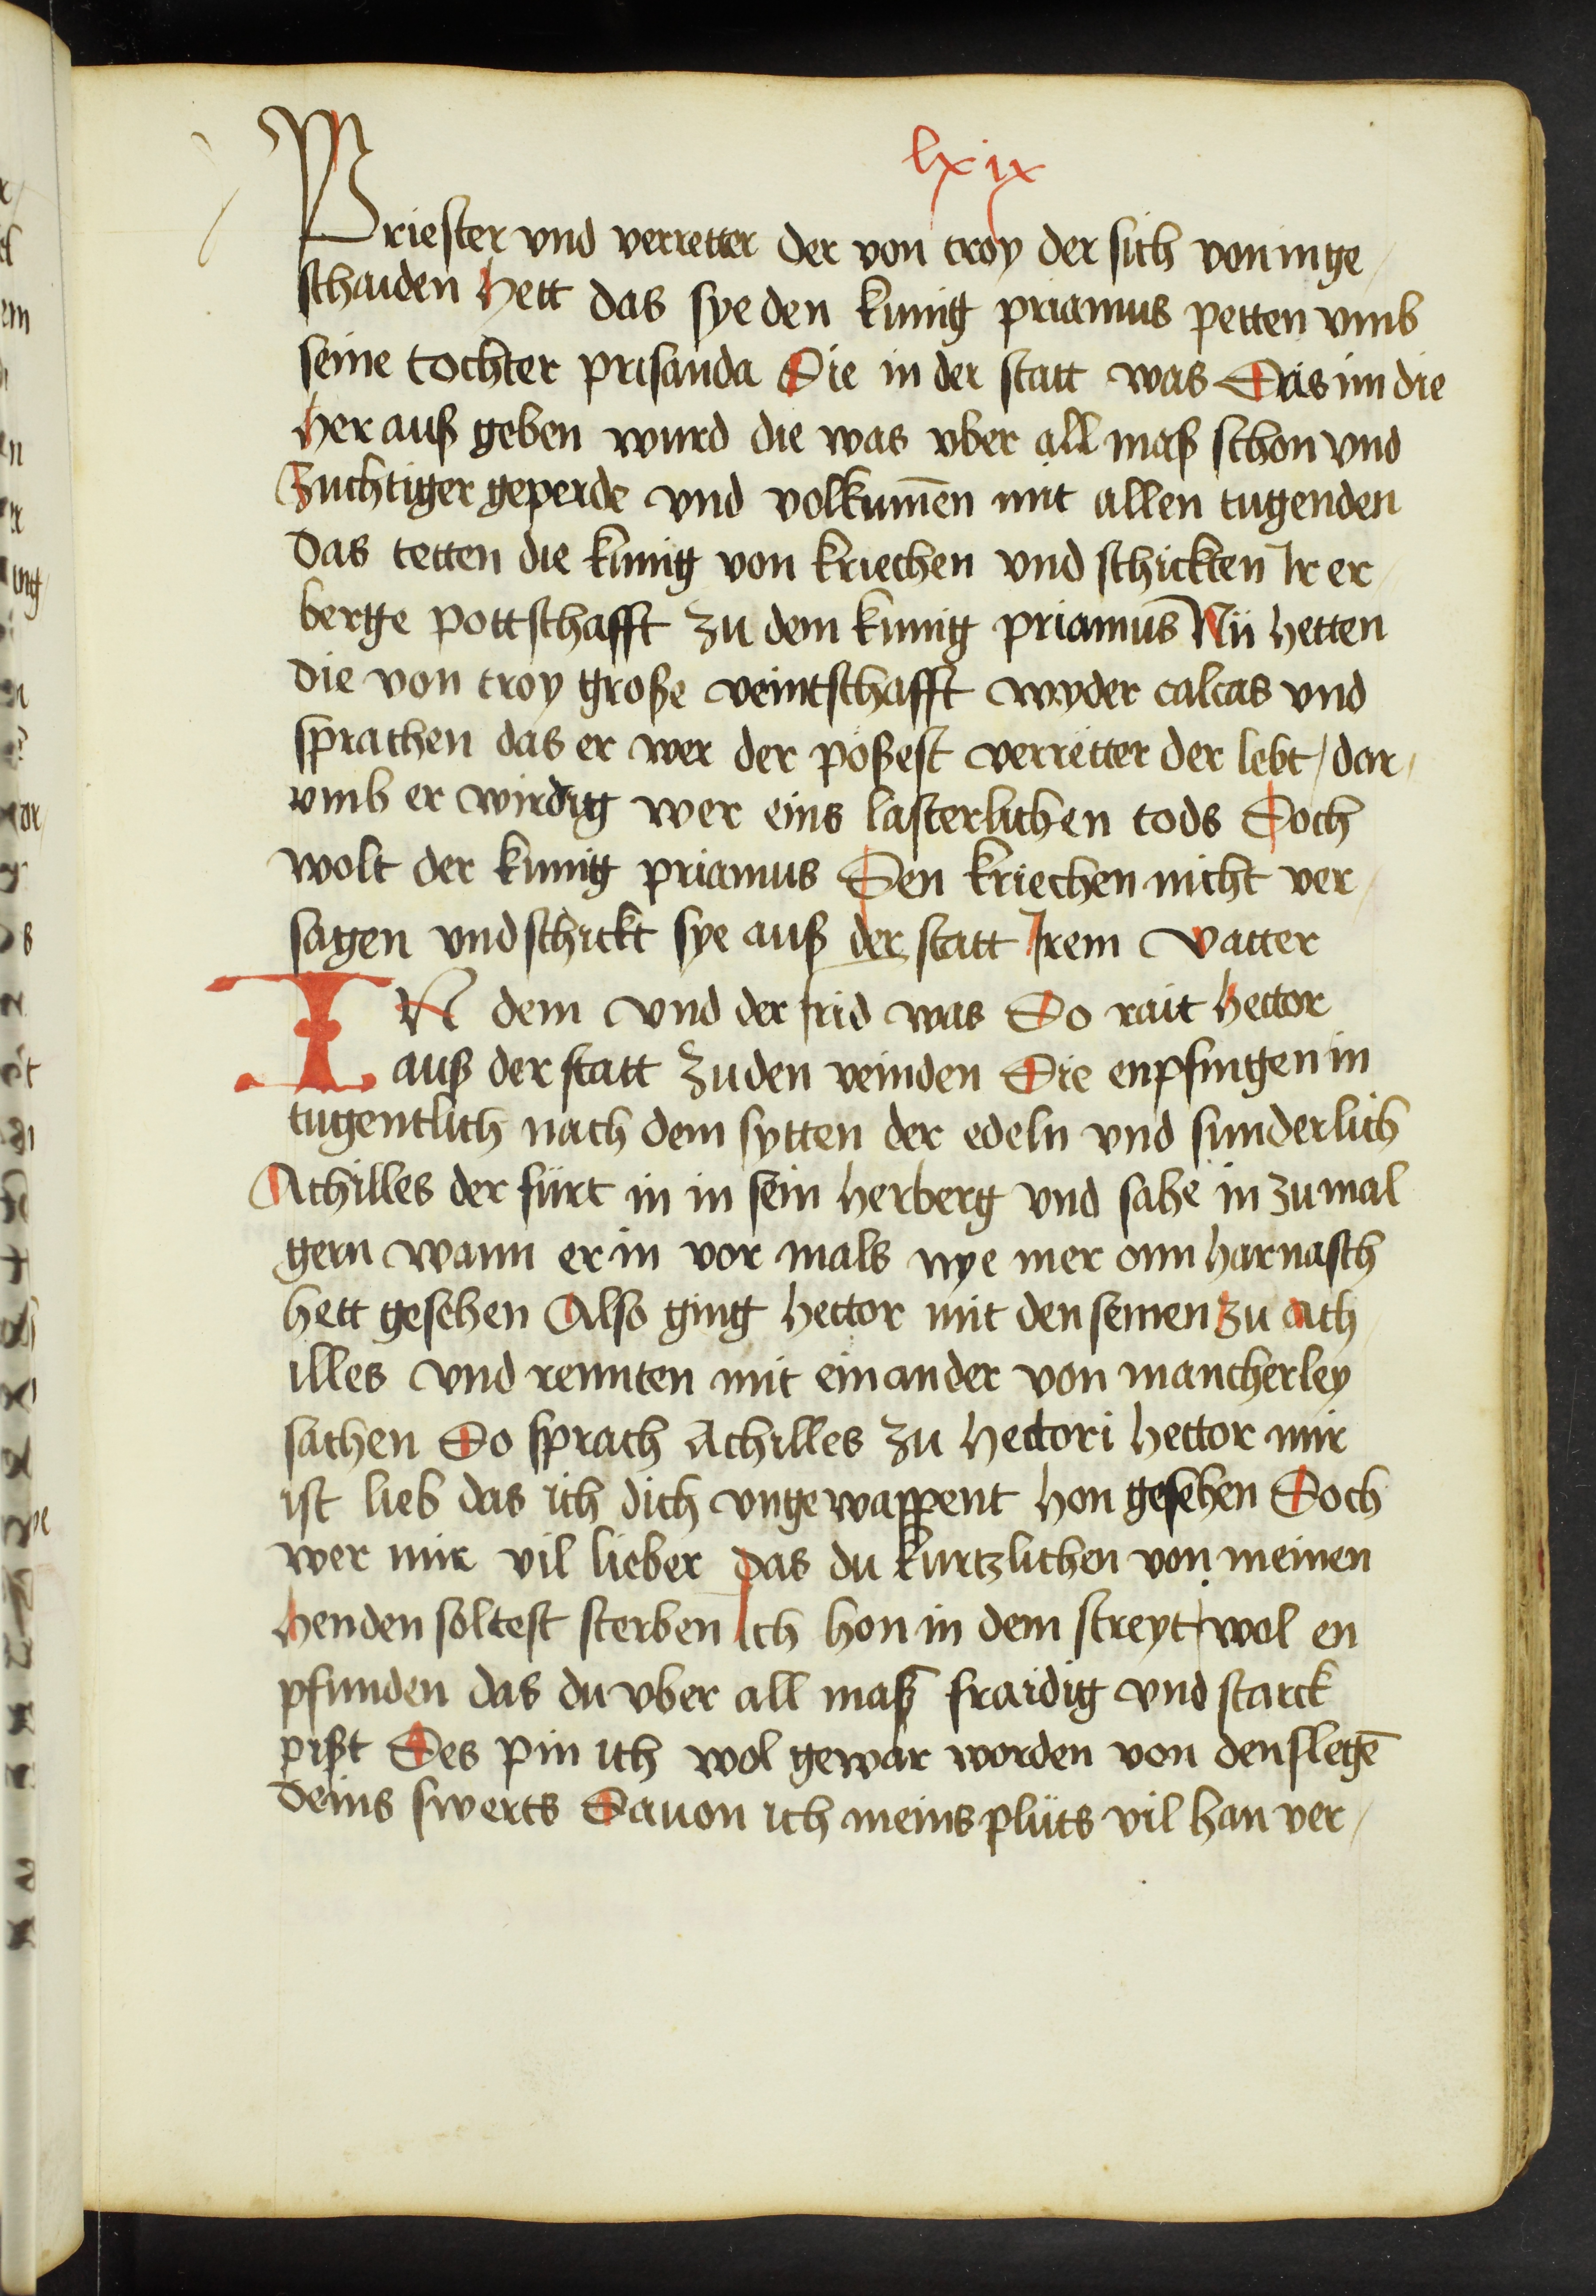 lxix
Priester vnd verretter der von troy der sich von in ge/
schaiden hett das sye den kunig priamus petten vmb
seine tochter prisanda Die in der statt was Das im die
her auß geben wurd die was vber all maß schon vnd
Zuchtiger geperde vnd volkumē mit allen tugenden
Das tetten die kunig von kriechen vnd schickten Ir er/
berge pottschafft zu dem kunig priamus Nü hetten
die von troy große veintschafft wyder calcas vnd
sprachen das er wer der poßest verretter der lebt / dar/
vmb er wirdig wer eins lasterlichen tods Doch
wolt der kunig priamus Den kriechen nicht ver/
sagen vnd schickt sye auß der statt Irem vatter
IN dem vnd der frid was Do rait hector
auß der statt Zu den veinden Die enpfingen in
tugentlich nach dem sytten der edeln vnd sunderlich
Achilles der fürt in in sein herberg vnd sahe in zu mal
gern wann er in vor mals nye mer onn harnasch
hett gesehen Also ging hector mit den seinen zu ach/
illes vnd rennten mit ein ander von mancherley
sachen Do sprach Achilles zu hectori hector mir
ist lieb das ich dich vngewappent hon gesehen Doch
wer mir vil lieber das du kurtzlichen von meinen
henden soltest sterben Ich hon in dem streyt wol en
pfunden das du vber all maß fraidig vnd starck
pißt Des pin ich wol gewar worden von den slegē
deins swerts Dauon ich meins plüts vil han ver/